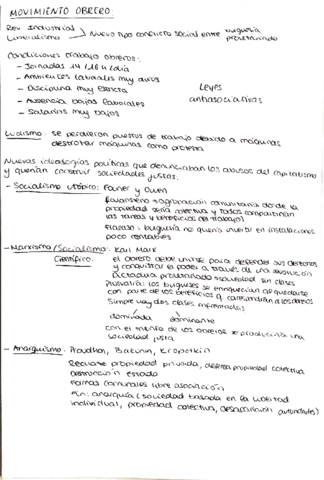 MOVIMIENTO OBRERO:
Rev Industrial
Liberalismo Nuevo tipo conflicto social entre burguesía
proletariado
Condiciones trabajo obreros:
- Jornadas 14/16 h/día
- Ambientes laborales muy duros
- Disciplina muy estricta Leyes
- Ausencia bajas laborales antiasociativas
- Salarios muy bajos
Ludismo: se perdieron puestos de trabajo debido a máquinas
destrozar máquinas como protesta
Nuevas ideologías políticas que denunciaban los abusos del capitalismo
y querían construir sociedades justas.
- Socialismo utópico: Fourier y Owen
Falansterio → agrupación comunitaria donde la
propiedad sería colectiva y todos compartirían
las tareas y beneficios del trabajo)
Fracaso: burguesía no quería invertir en instalaciones
poco rentables
- Marxismo/Socialismo: Karl Marx
Científico: el obrero debe unirse para defender sus derechos
y conquistar el poder a través de una revolución
Dictadura proletariado → sociedad sin clases
Plusvalía: los burgueses se enriquecían al quedarse
con parte de los beneficios q
Siempre hay dos clases enfrentadas:
dominada dominante
con el triunfo de los obreros se produciría una
sociedad justa
- Anarquismo: Proudhon, Bakunin, Kropotkin
Rechaza propiedad privada, defensa propiedad colectiva
Destrucción estado
Formas comunales libre asociación
Fin: anarquía (sociedad basada en la libertad
individual, propiedad colectiva, desaparición autoridades)